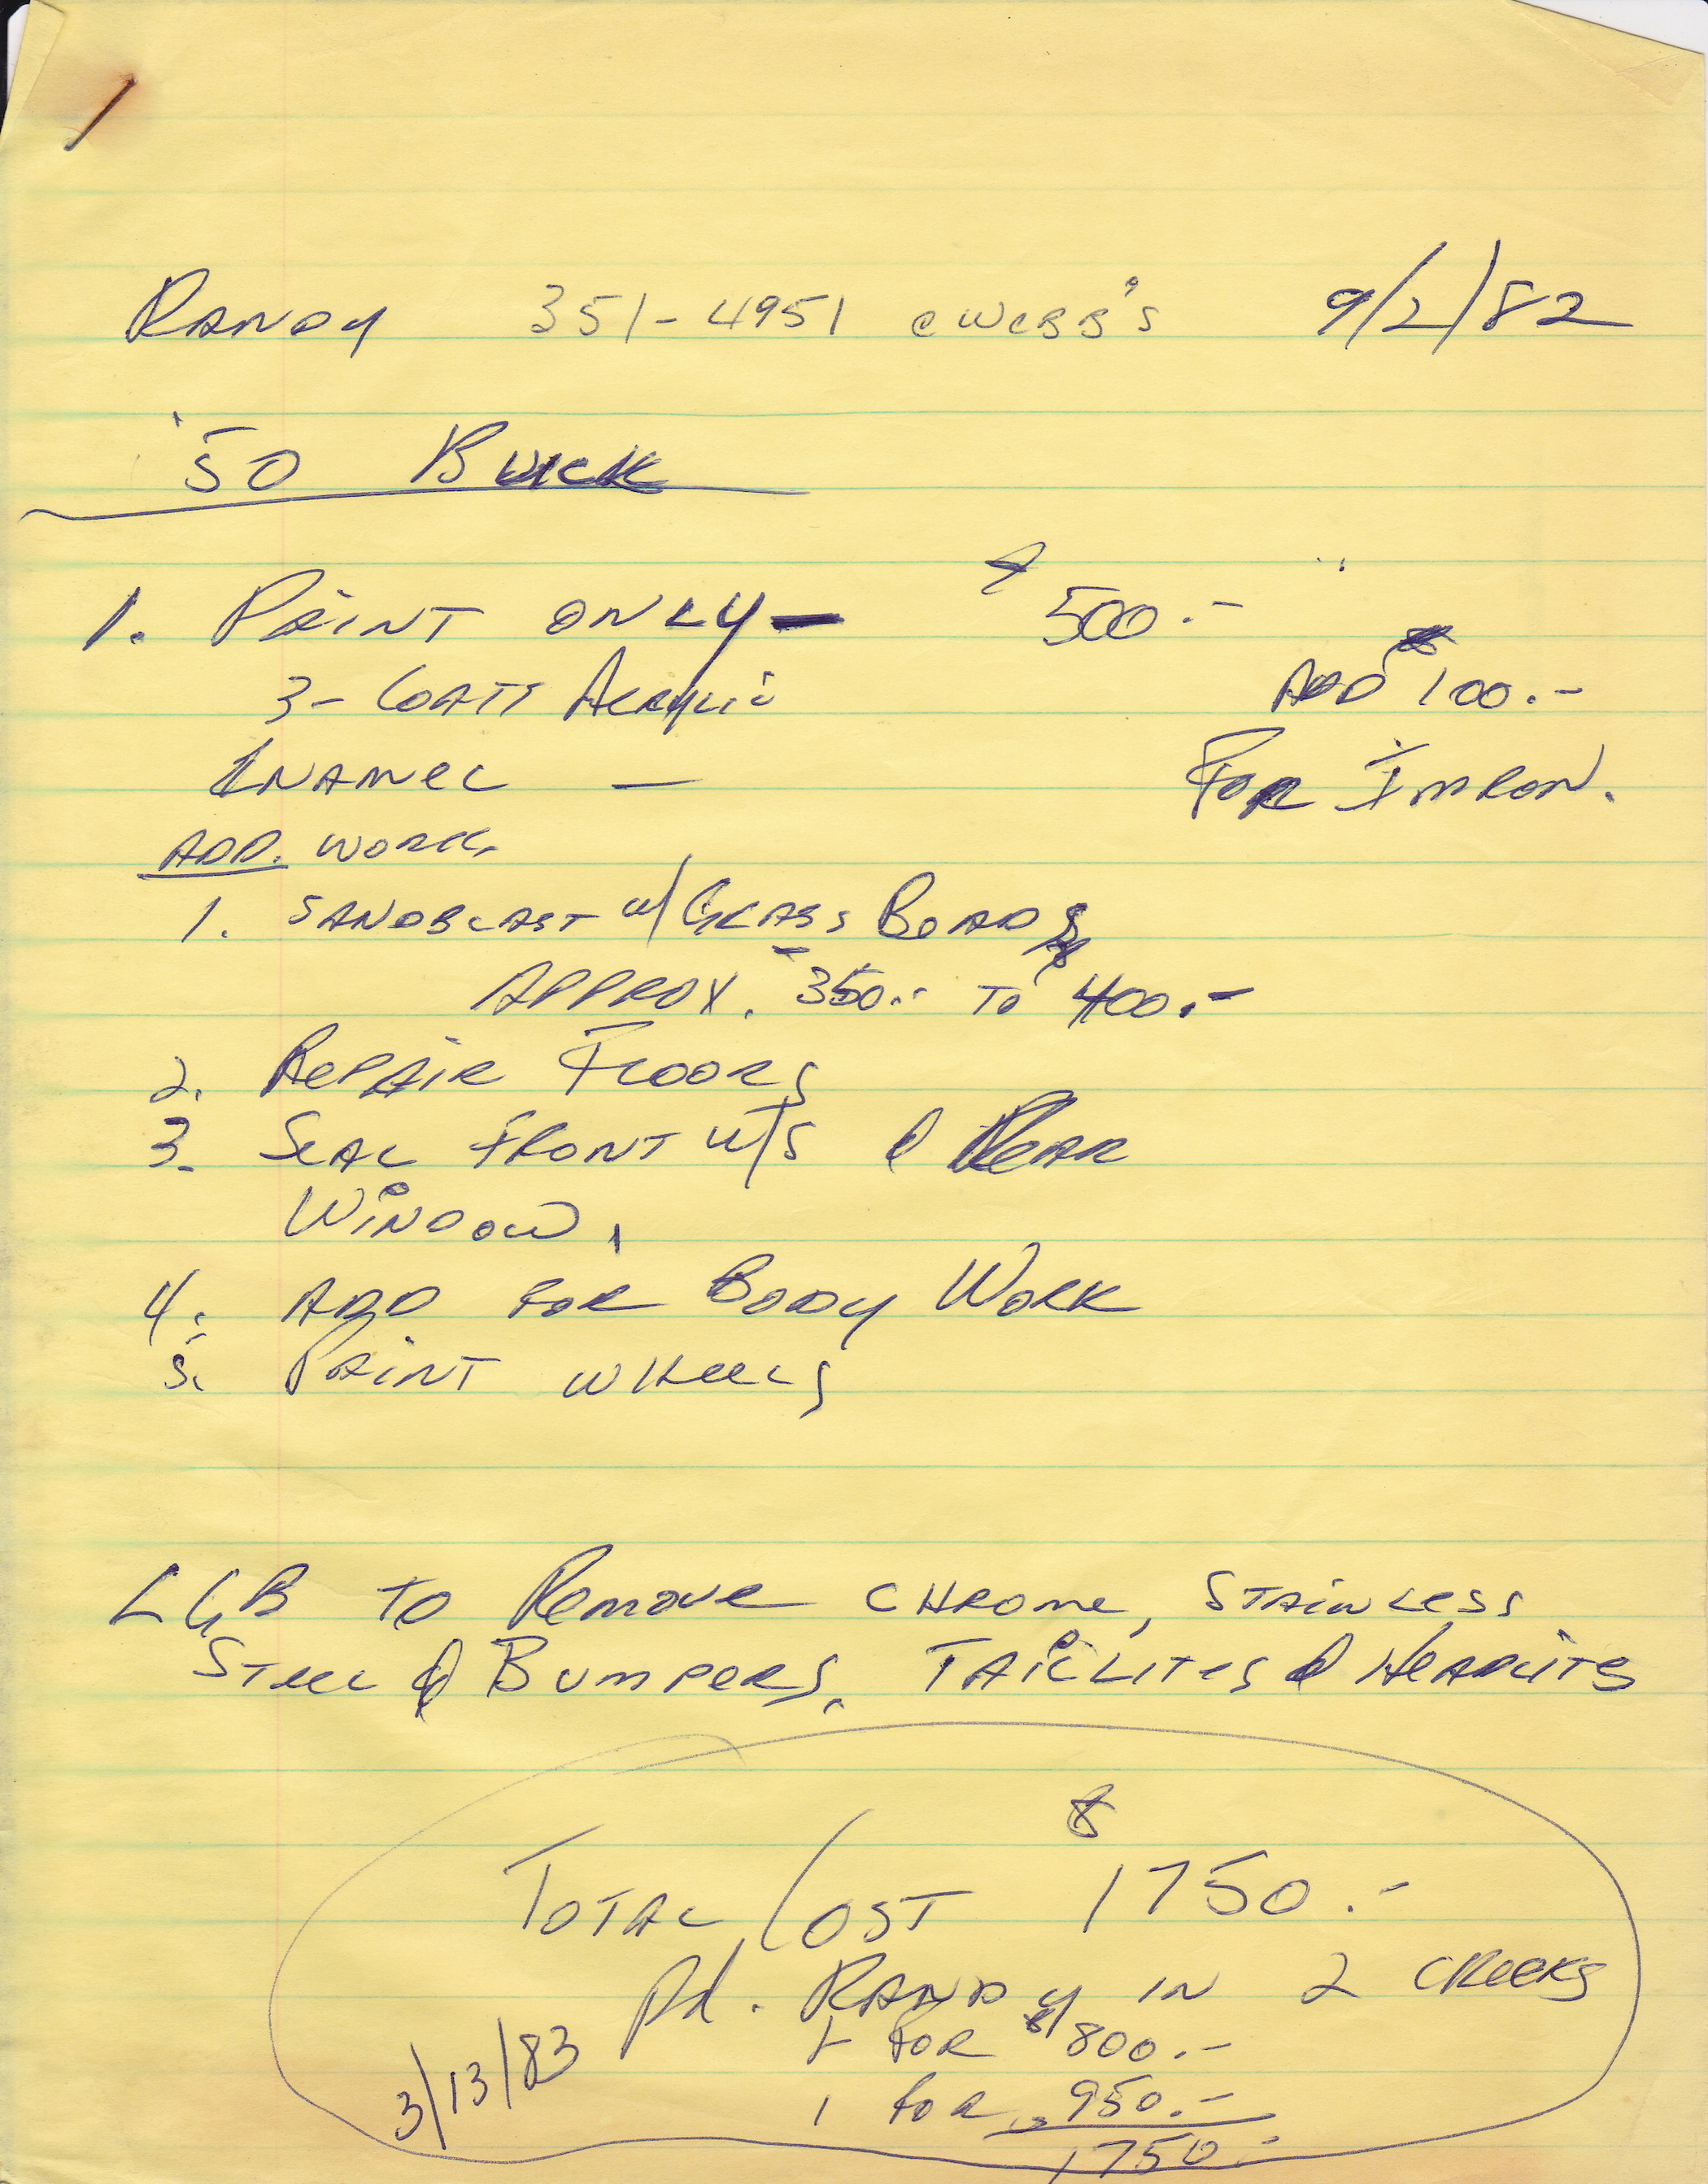 RANDY 351-4951 @ WEBB'S 9/2/82
'50 BUICK
1. PAINT ONLY — $500.-
3- COATS ACRYLIC ADD $100.-
ENAMEL — FOR IMRON.
ADD. WORK.
1. SANDBLAST W/ GLASS BEADS
APPROX. $350.- TO $400.-
2. REPAIR FLOORS
3. SEAL FRONT W/S & REAR
WINDOW.
4. ADD FOR BODY WORK
5. PAINT WHEELS
LGB TO REMOVE CHROME, STAINLESS
STEEL & BUMPERS, TAILLITES & HEADLITES
TOTAL COST $1750.-
Pd. RANDY IN 2 CHECKS
1 FOR $800.-
3/13/83
1 FOR $950.-
1750.-